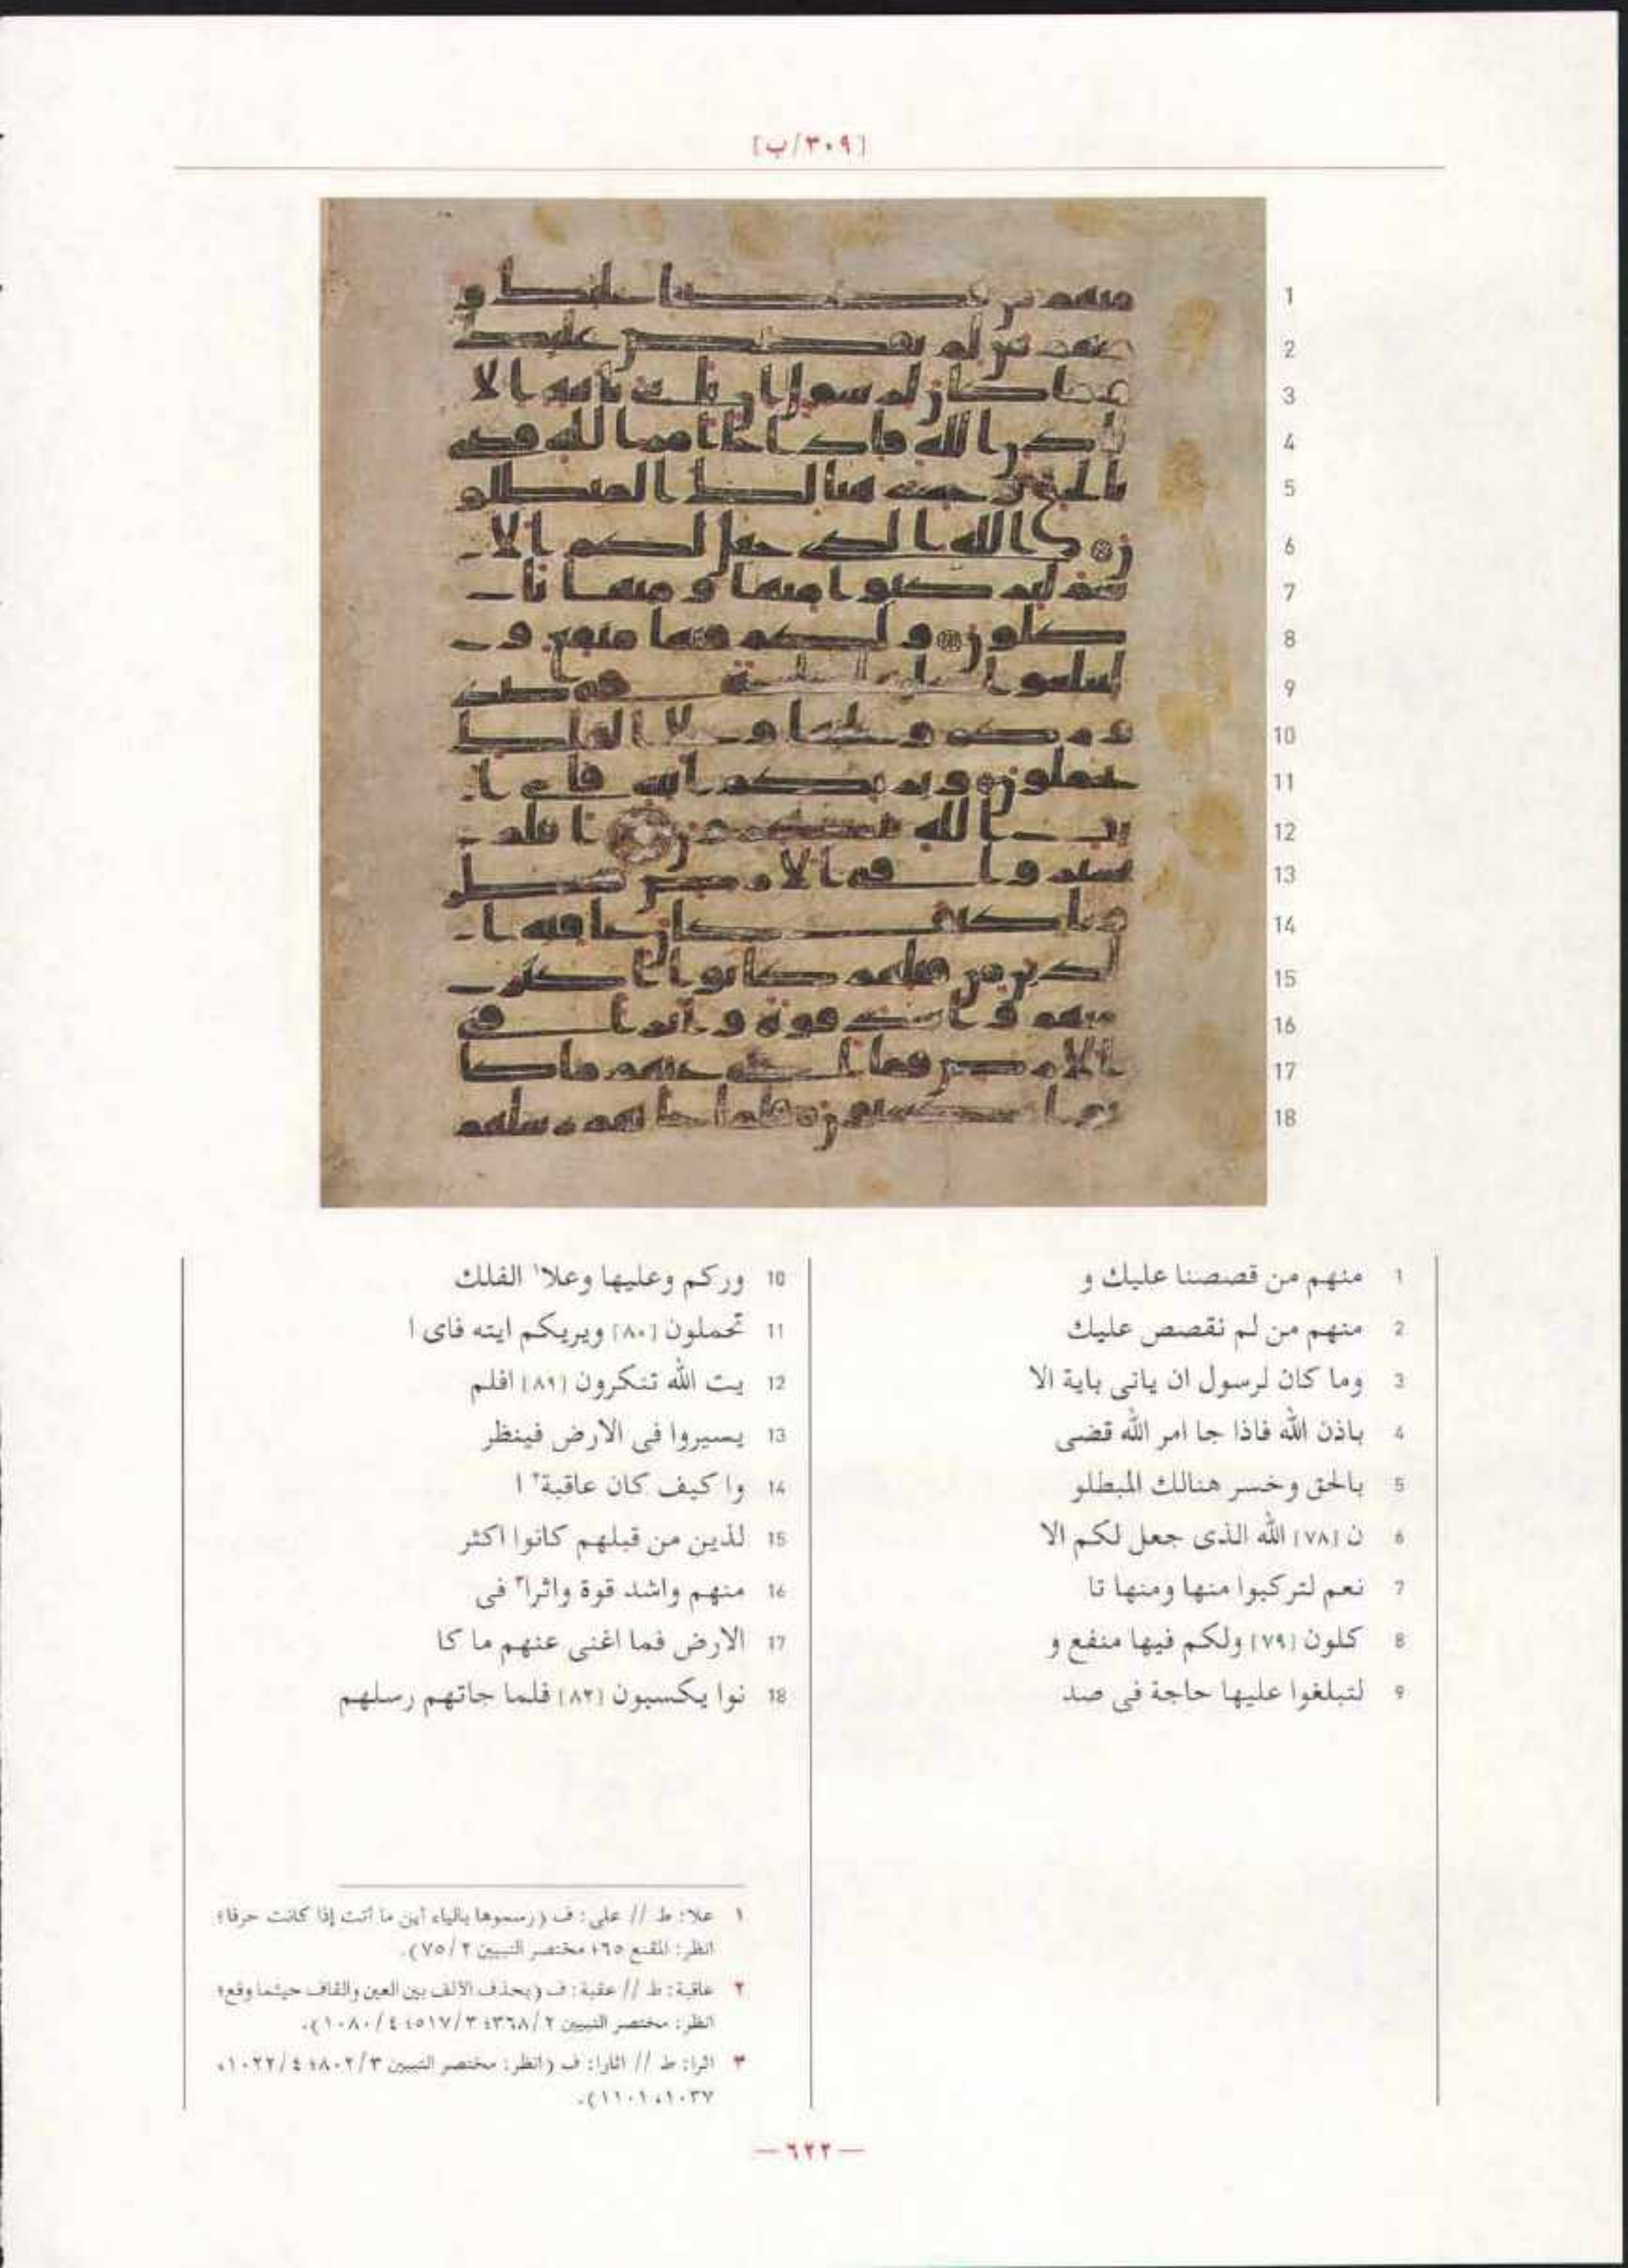 [٣٠٩/ب]
1 منهم من قصصنا عليك و
2 منهم من لم نقصص عليك
3 وما كان لرسول ان ياتى باية الا
4 باذن الله فاذا جا امر الله قضى
5 بالحق وخسر هنالك المبطلو
6 ن [٧٨] الله الذى جعل لكم الا
7 نعم لتركبوا منها ومنها تا
8 كلون [٧٩] ولكم فيها منفع و
9 لتبلغوا عليها حاجة فى صد
10 وركم وعليها وعلا١ الفلك
11 تحملون [٨٠] ويريكم ايته فاى ا
12 يت الله تنكرون [٨١] افلم
13 يسيروا فى الارض فينظر
14 وا كيف كان عاقبة٢ ا
15 لذين من قبلهم كانوا اكثر
16 منهم واشد قوة واثرا٣ فى
17 الارض فما اغنى عنهم ما كا
18 نوا يكسبون [٨٢] فلما جاتهم رسلهم
١ علا: ط // على: ف (رسموها بالياء أين ما أتت إذا كانت حرفا؛
انظر: المقنع ٦٥؛ مختصر التبيين ٢/ ٧٥).
٢ عاقبة: ط // عقبة: ف (بحذف الألف بين العين والقاف حيثما وقع؛
انظر: مختصر التبيين ٢/ ٣٦٨؛ ٣/ ٥١٧؛ ٤/ ١٠٨٠).
٣ اثرا: ط // اثارا: ف (انظر: مختصر التبيين ٣/ ٨٠٢؛ ٤/ ١٠٢٢،
١٠٣٧، ١١٠١).
— ٦٢٢ —